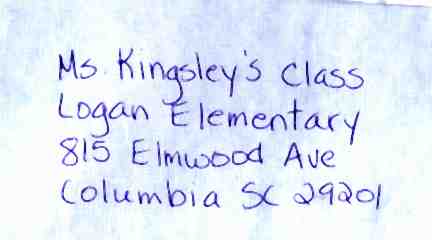 Ms. Kingsley's Class
Logan Elementary
815 Elmwood Ave
Columbia SC 29201